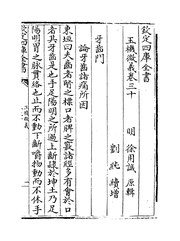 欽定四庫全書
玉機微義卷三十
明 徐用誠 原輯
劉純 續增
牙齒門
論牙齒諸痛所因
東垣曰夫齒者腎之標口者脾之竅諸經多有會於口
者其牙齒是也手足陽明之所過上齗隸於坤土乃足
陽明胃之脈貫絡也止而不動下齗嚼物動而不休手